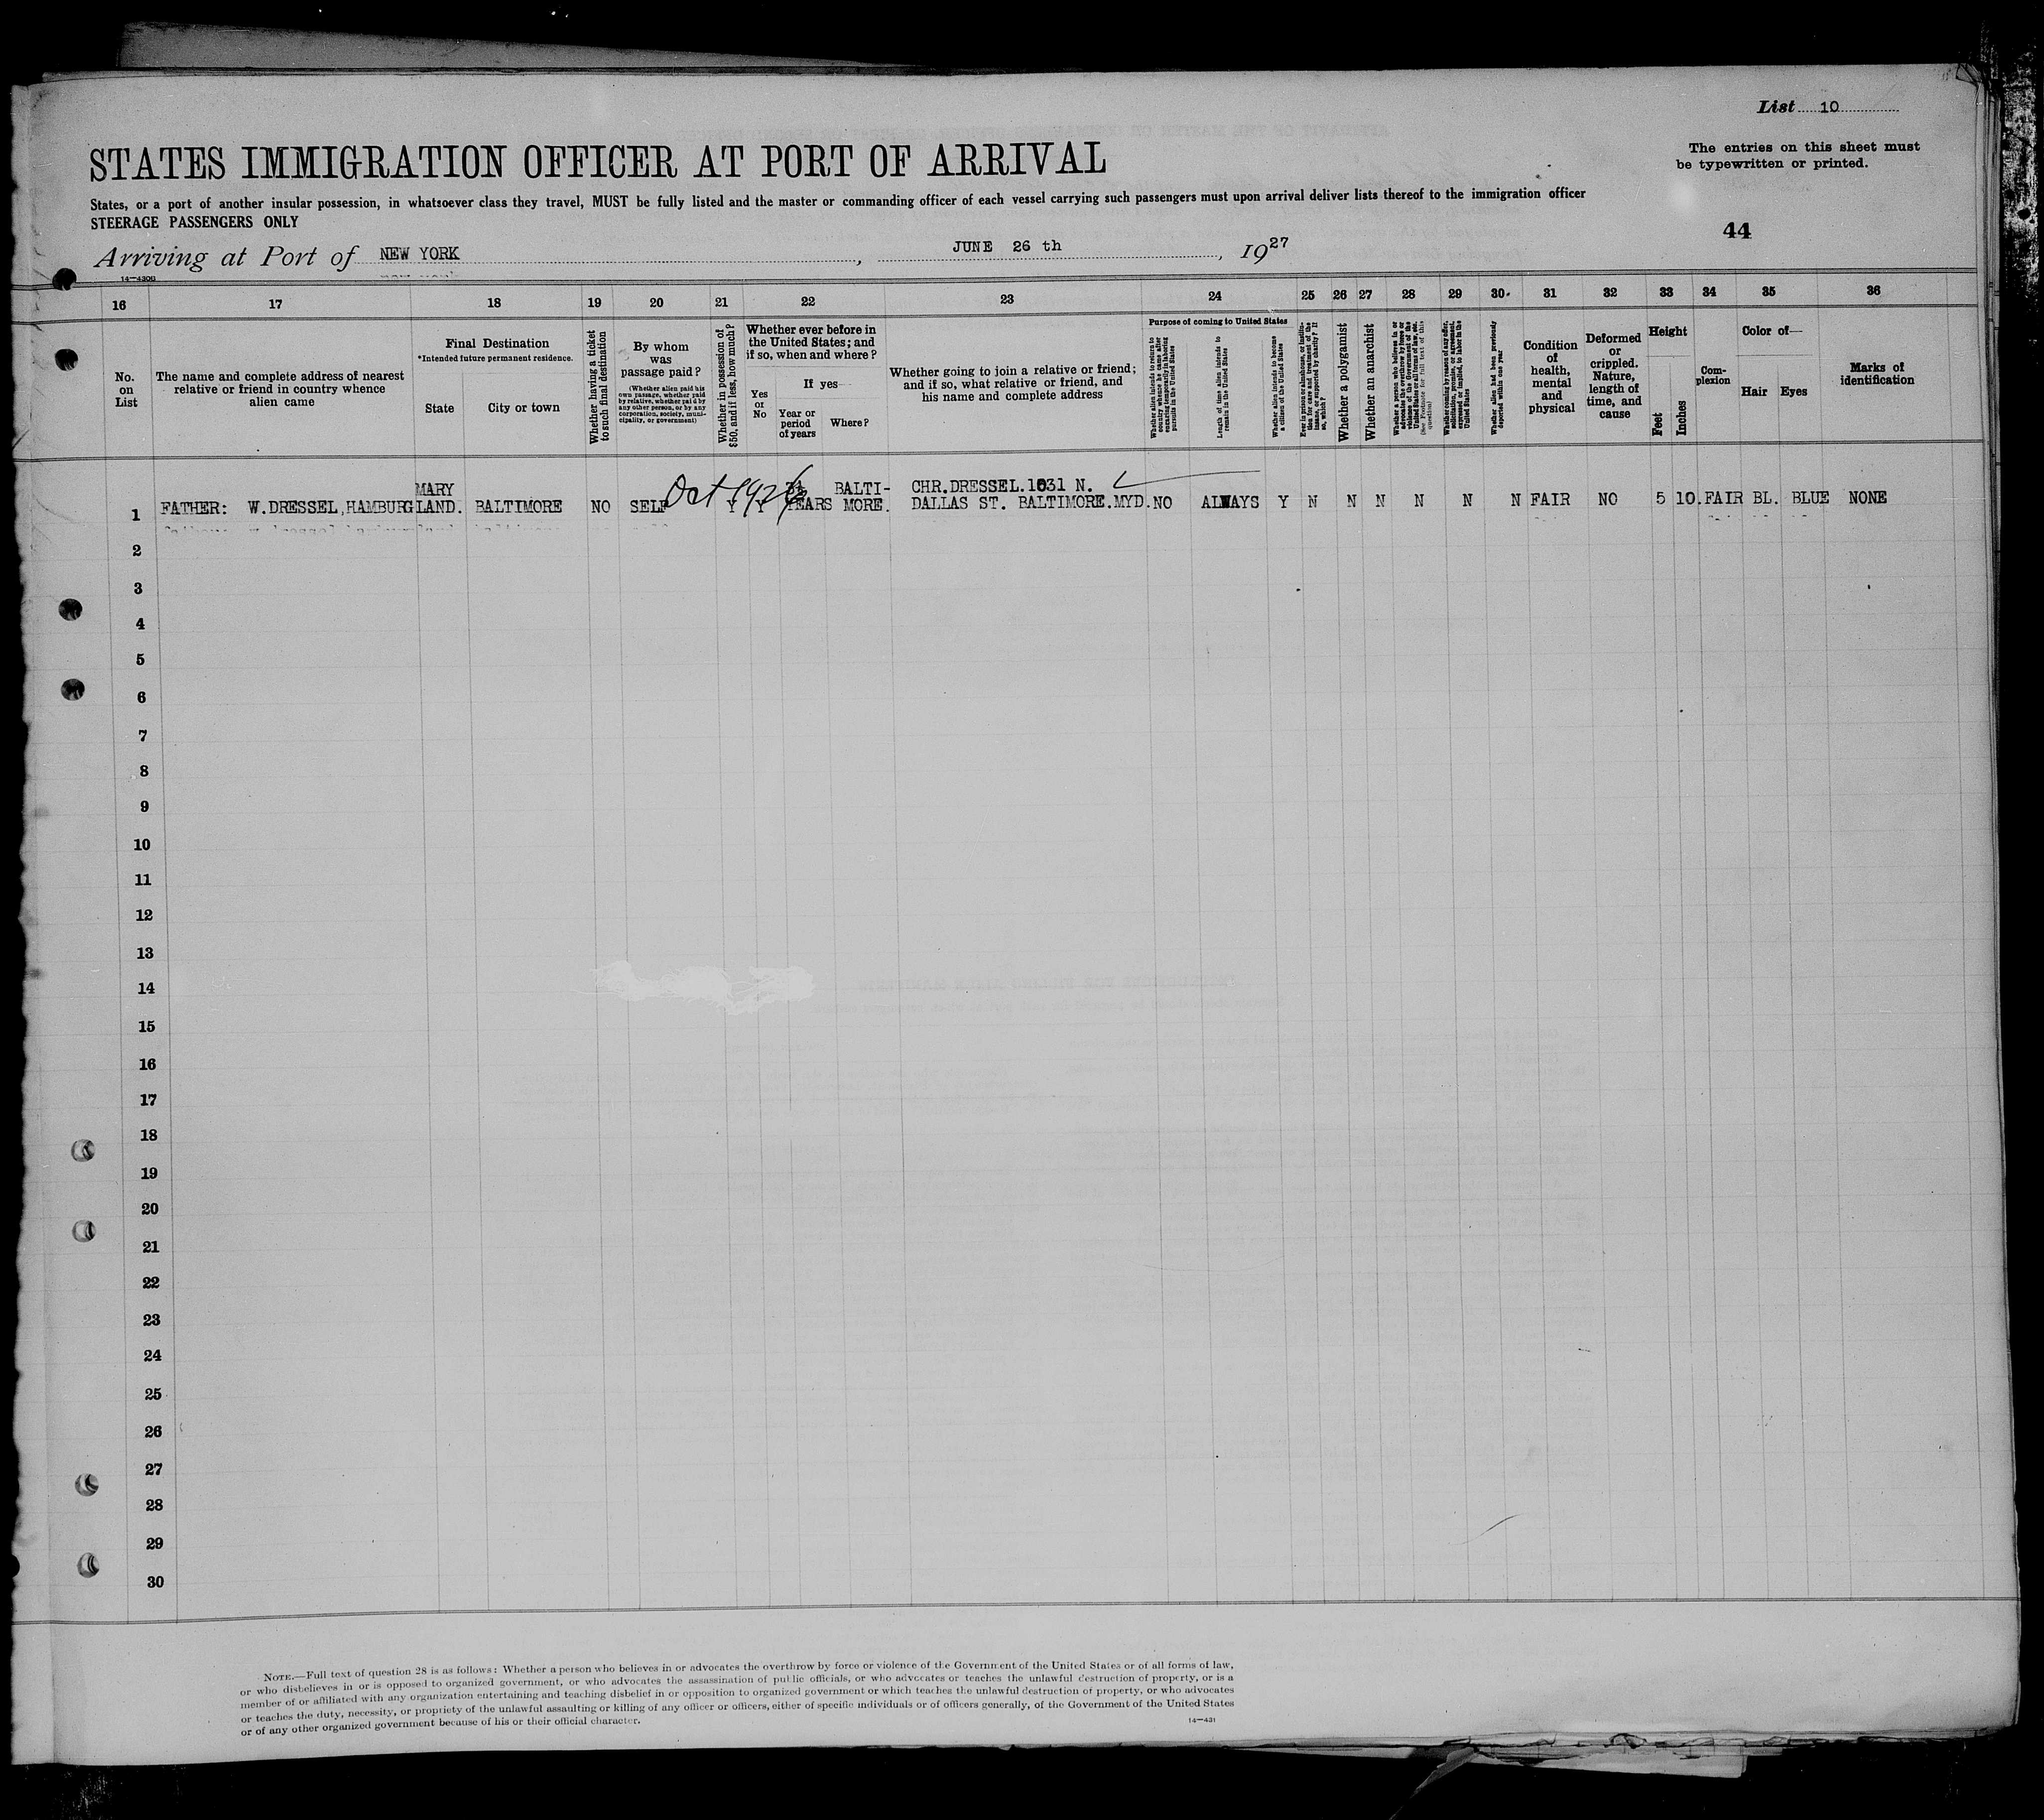 List 10
STATES IMMIGRATION OFFICER AT PORT OF ARRIVAL
The entries on this sheet must
be typewritten or printed.
States, or a port of another insular possession, in whatsoever class they travel, MUST be fully listed and the master or commanding officer of each vessel carrying such passengers must upon arrival deliver lists thereof to the immigration officer
STEERAGE PASSENGERS ONLY
44
Arriving at Port of NEW YORK, JUNE 26 th, 1927
14—430B
16 17 18 19 20 21 22 23 24 25 26 27 28 29 30 31 32 33 34 35 36
No.
on
List
The name and complete address of nearest
relative or friend in country whence
alien came
Final Destination
*Intended future permanent residence.
State
City or town
Whether having a ticket
to such final destination
By whom
was
passage paid?
(Whether alien paid his
own passage, whether paid
by relative, whether paid by
any other person, or by any
corporation, society, muni-
cipality, or government)
Whether in possession of
$50, and if less, how much?
Whether ever before in
the United States; and
if so, when and where?
Yes
or
No
If yes—
Year or
period
of years
Where?
Whether going to join a relative or friend;
and if so, what relative or friend, and
his name and complete address
Purpose of coming to United States
Whether alien intends to return to
country whence he came after
engaging temporarily in laboring
pursuits in the United States
Length of time alien intends to
remain in the United States
Whether alien intends to become
a citizen of the United States
Ever in prison or almshouse, or institu-
tion for care and treatment of the
insane, or supported by charity? If
so, which?
Whether a polygamist
Whether an anarchist
Whether a person who believes in or
advocates the overthrow by force or
violence of the Government of the
United States or all forms of law, etc.
(See Footnote for full text of this
question)
Whether coming by reason of any offer,
solicitation, promise, or agreement,
expressed or implied, to labor in the
United States
Whether alien had been previously
deported within one year
Condition
of
health,
mental
and
physical
Deformed
or
crippled.
Nature,
length of
time, and
cause
Height
Feet
Inches
Com-
plexion
Color of—
Hair
Eyes
Marks of
identification
MARY
Oct 1926
BALTI-
CHR.DRESSEL.1631 N.
1 FATHER: W.DRESSEL,HAMBURG LAND. BALTIMORE NO SELF Y Y YEARS MORE. DALLAS ST. BALTIMORE.MYD. NO ALWAYS Y N N N N N N FAIR NO 5 10. FAIR BL. BLUE NONE
2
3
4
5
6
7
8
9
10
11
12
13
14
15
16
17
18
19
20
21
22
23
24
25
26
27
28
29
30
NOTE.—Full text of question 28 is as follows: Whether a person who believes in or advocates the overthrow by force or violence of the Government of the United States or of all forms of law,
or who disbelieves in or is opposed to organized government, or who advocates the assassination of public officials, or who advocates or teaches the unlawful destruction of property, or is a
member of or affiliated with any organization entertaining and teaching disbelief in or opposition to organized government or which teaches the unlawful destruction of property, or who advocates
or teaches the duty, necessity, or propriety of the unlawful assaulting or killing of any officer or officers, either of specific individuals or of officers generally, of the Government of the United States
or of any other organized government because of his or their official character.
14—431